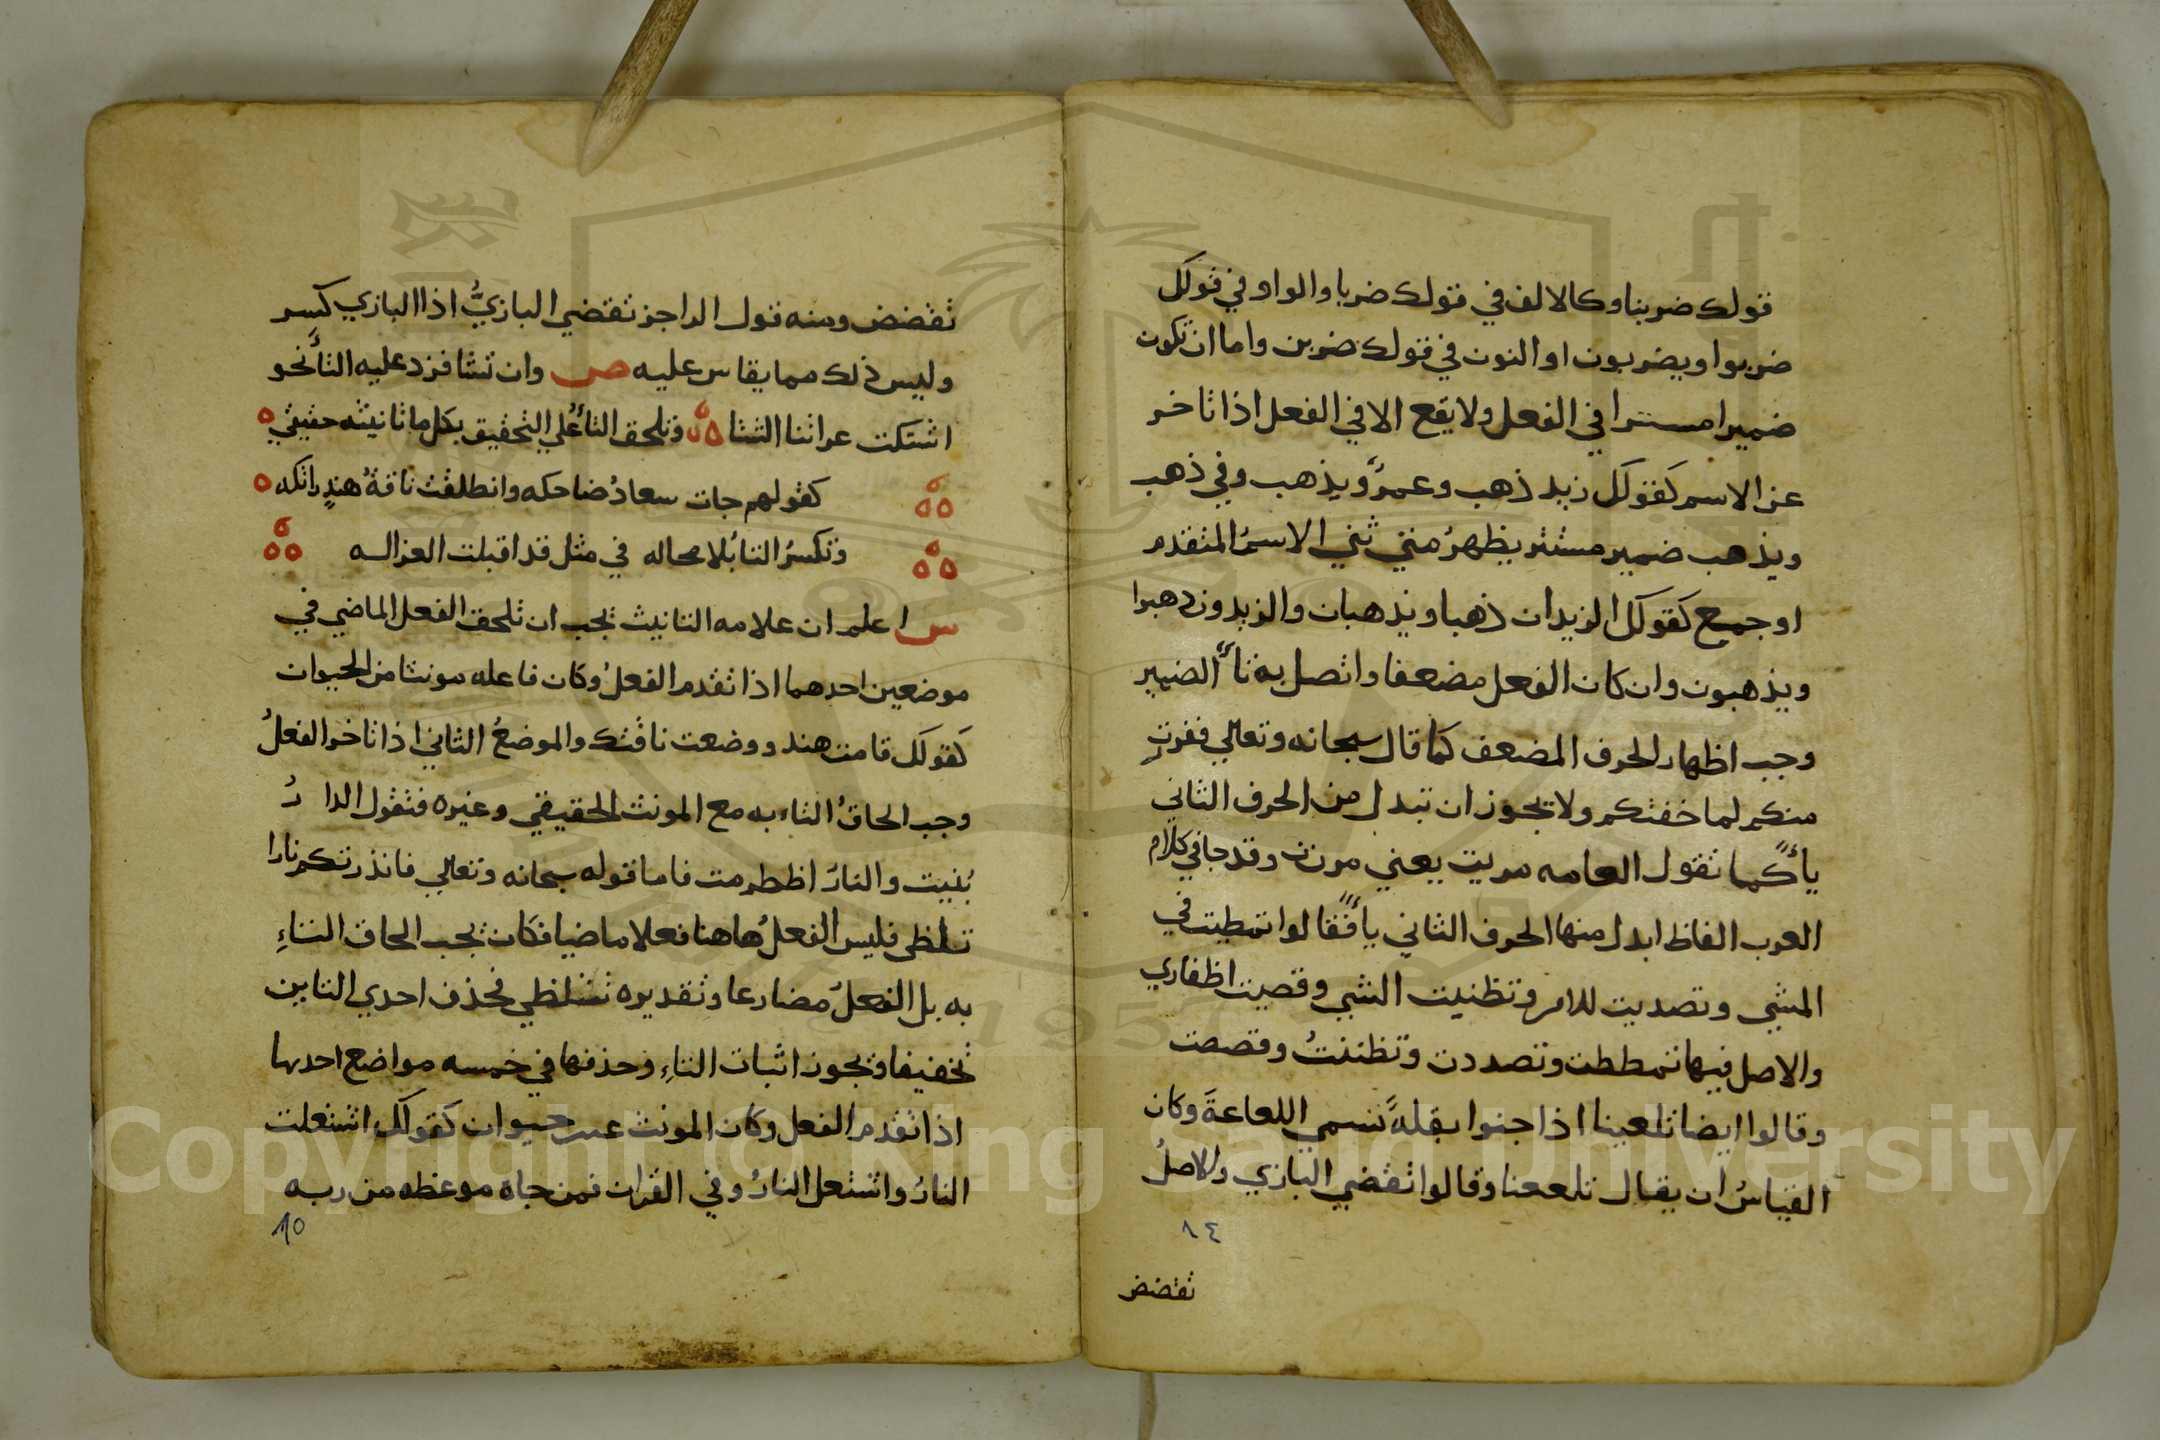 قولك ضربنا وكالالف في قولك ضربا والواو في قولك
ضربوا ويضربون او النون في قولك ضربن واما ان تكون
ضميرا مستترا في الفعل ولا يقع الا في الفعل اذا تاخر
عن الاسم كقولك زيد ذهب وعمرٌو يذهب وفي ذهب
ويذهب ضمير مستتر يظهرُ متي ثني الاسمُ المتقدم
او جمع كقولك الزيدان ذهبا ويذهبان والزيدون ذهبوا
ويذهبون وان كان الفعل مضعفا واتصل به تاء الضمير
وجب اظهار الحرف المضعف كما قال سبحانه وتعالي ففررت
منكم لما خفتكم ولا يجوز ان تبدل من الحرف الثاني
ياءً كما تقول العامه مريت يعني مررت وقد جا في كلام
العرب الفاظ ابدل منها الحرف الثاني ياءً فقالوا تمطيت في
المشي وتصديت للامر وتظنيت الشي وقصيت اظفاري
والاصل فيها تمططت وتصددت وتظننتُ وقصصت
وقالوا ايضا تلعينا اذا جنوا بقلةً تسمي اللعاعةَ وكان
القياسُ ان يقال تلععنا وقالوا تقضي البازي والاصلُ
٨٤
تقضض
تقضض ومنه قول الراجز تقضي البازيُّ اذا البازي كسر
وليس ذلك مما يقاس عليه ص وان تشا فزد عليه التاء نحو
اشتكت عراتنا الشتا ة وتلحق التاءُ علي التحقيق بكل ما تانيثه حقيقي ه
كقولهم جات سعادُ ضاحكه وانطلقت ناقةُ هندٍ راتكه ه
وتكسرُ التا بُلا محاله في مثل قد اقبلت الغزاله
س اعلم ان علامه التانيث يجب ان تلحق الفعل الماضي في
موضعين احدهما اذا تقدم الفعلُ وكان فاعله مونثا من الحيوان
كقولك قامت هند ووضعت ناقتك والموضعُ الثاني اذا تاخر الفعلُ
وجب الحاقُ التاء به مع المونث الحقيقي وغيره فتقول الدارُ
بُنيت والنارُ اظطرمت فاما قوله سبحانه وتعالي فانذرتكم نارا
تلظى فليس الفعلُ هاهنا فعلا ماضيا فكان يجب الحاق التاءِ
به بل الفعلُ مضارعا وتقديره تتلظي فحذف احدي التاين
تخفيفا ويجوز اثبات التاءِ وحذفها في خمسه مواضع احدها
اذا تقدم الفعل وكان المونث غير حيوان كقولك اشتعلت
النارُ واشتعل النارُ وفي القران فمن جاه موعظه من ربه
٨٥
Copyright © King Saud University
1957